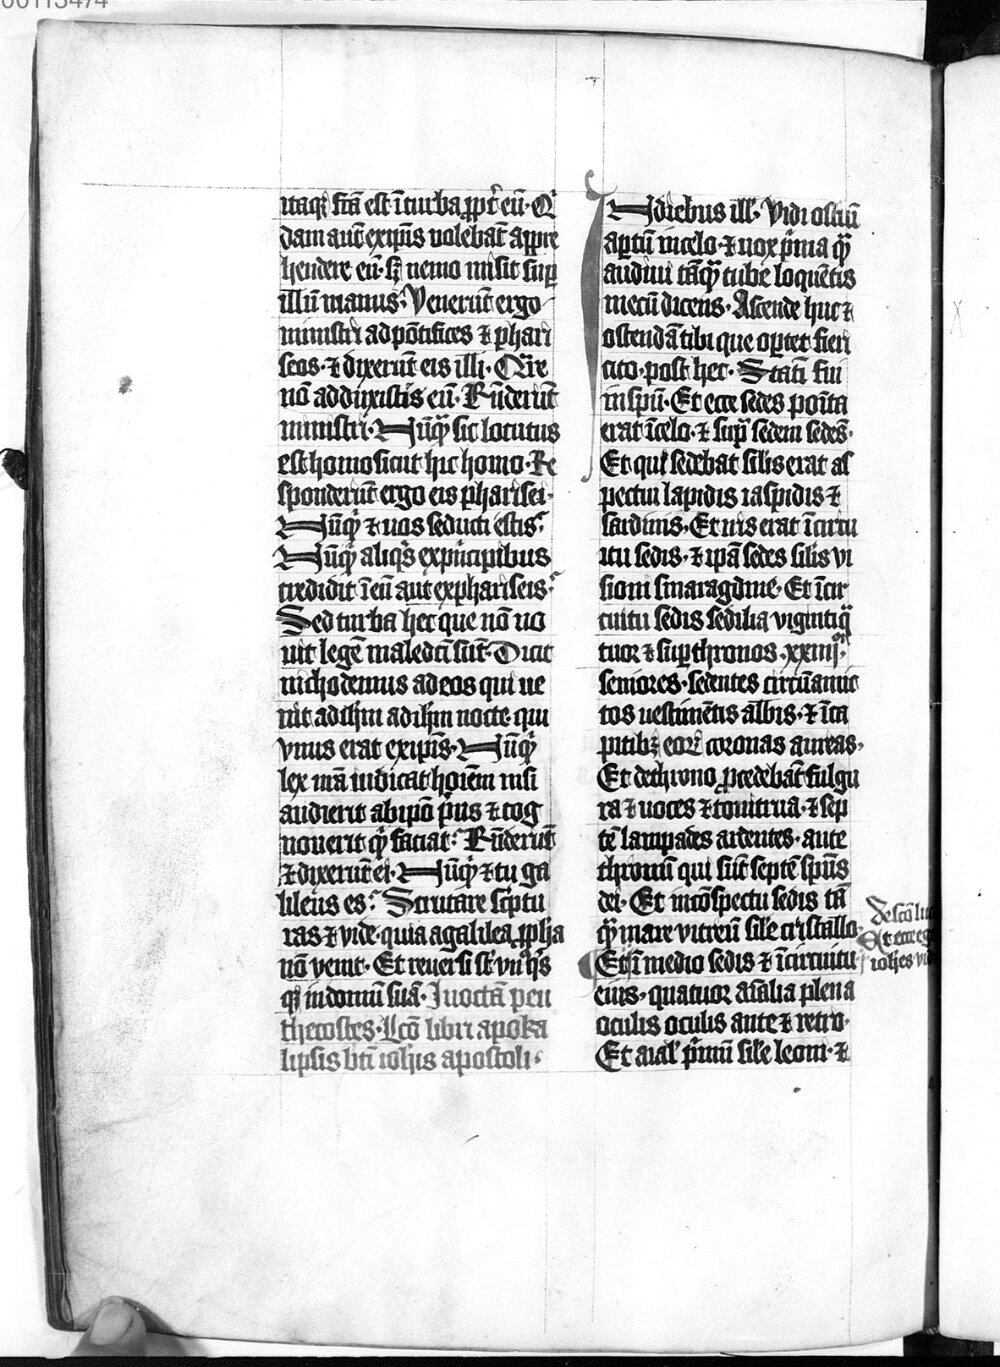 00113474
itaqꝫ fcā est ī turba ꝓpt̾ eū· Qͥ
dam aut̄ ex ip̄is volebāt appre
hendere eū· sꝫ nemo misit sup̄
illū manus· Venerūt ergo
ministri ad pōtifices ⁊ phari
seos· ⁊ dixerūt eis illi· Qͣre
nō adduxistis eū· Rn̄derūt
ministri· Nūqͣ sic locutus
est homo sicut hic homo· Re
sponderūt ergo eis pharisei·
Nūqͥ ⁊ uos seducti estis?
Nūqͥ aliqͥs ex prīcipibus
credidit ī eū aut ex phariseis?
Sed turba hec que nō no
uit legē maledcī sūt· Dicit
nichodemus ad eos qui ue
nit ad ih̄m nocte· qui
vnus erat ex ip̄is· Nūqͥ
lex nr̄a iudicat hoīem nisi
audierit ab ip̄o pͥus ⁊ cog
nouerit qͥ faciat? Rn̄derūt
⁊ dixerūt ei· Nūqͥ ⁊ tu ga
lileus es? Scrutare scͥptu
ras ⁊ vide· quia a galilea ꝓpha
nō venit· Et reuersi sūt vnͧqͥs
qꝫ in domū suā· In octā pen
thecostes· Lcō libri apoka
lipsis bt̄i ioh̄is apostoli·
In diebus ill̄· Vidi ostiū
aꝑtū in celo· ⁊ uox pͥma qͣ̄
audiui tāqͣ̄ tube loquētis
mecū dicens· Ascende huc ⁊
ostendā tibi que oꝑtet fieri
cito· post hec· Statī fui
in sp̄u· Et ecce sedes posita
erat ī celo· ⁊ supͣ sedem sedēs·
Et qui sedebat sil̄is erat as
pectui lapidis iaspidis ⁊
sardinis· Et iris erat ī circu
itu sedis· ⁊ ip̄ā sedes sil̄is vi
sioni smaragdine· Et ī cir
cuitu sedis sedilia vigintiqͣ
tuor ⁊ suꝑ thronos ·xxiiijͦʳ·
seniores· sedentes circūamic
tos uestimētis albis· ⁊ ī ca
pitibꝫ eoꝝ coronas aureas·
Et de throno ꝓcedebāt fulgu
ra ⁊ uoces ⁊ tonitrua· ⁊ sep
tē lampades ardentes· ante
thronū qui sūt septē sp̄us
dei· Et in cōspectu sedis tā
qͣ̄ mare vitreū sil̄e cristallo·
Et ī medio sedis ⁊ ī circuitu
eius· quatuor aīalia plena
oculis oculis ante ⁊ retro·
Et aīal pͥmū sil̄e leoni· ⁊
Et ecce eg
ioh̄es vid